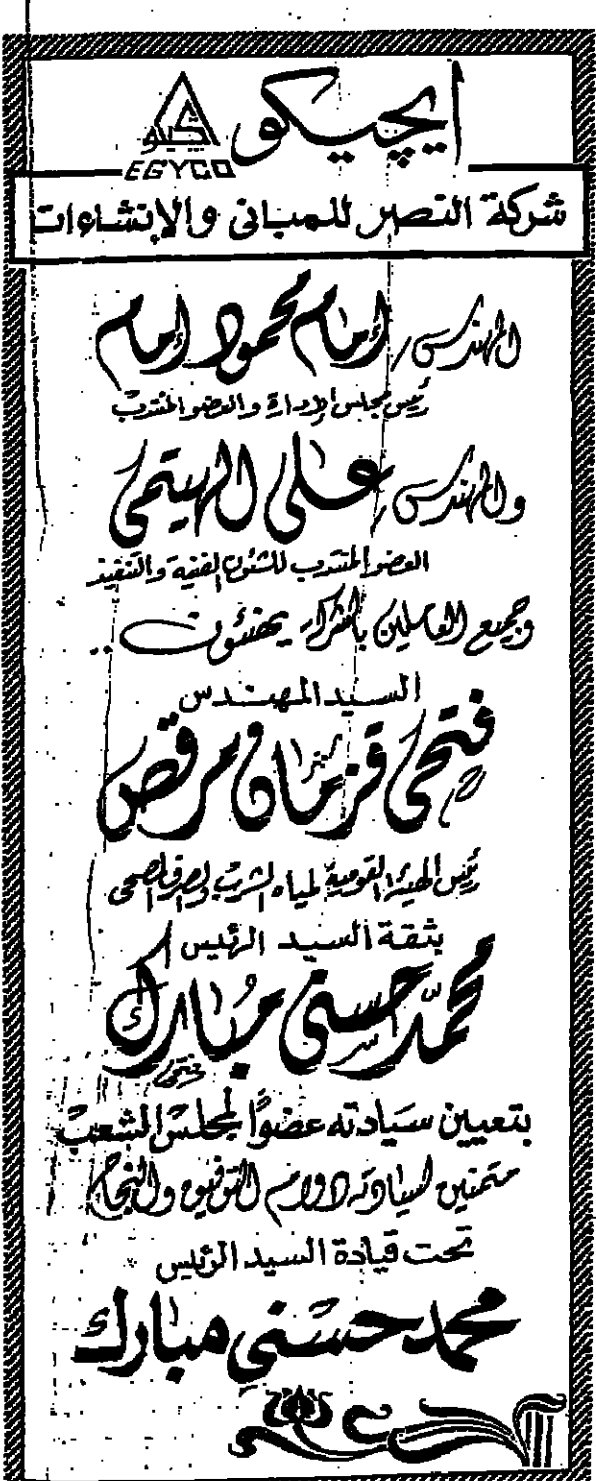 ايچيكو
ايچيكو
EGYCO
شركة النصر للمبانى والإنشاءات
المهندس / إمام محمود إمام
رئيس مجلس الإدارة والعضو المنتدب
والمهندس / على الهيتمى
العضو المنتدب للشئون الفنية والتنفيذ
وجميع العاملين بالشركة يهنئون ..
السيد المهندس
فتحى قزمان مرقص
رئيس الهيئة القومية لمياه الشرب والصرف الصحى
بثقة السيد الرئيس
محمد حسنى مبارك
بتعيين سيادته عضوًا لمجلس الشعب
متمنين لسيادته دوام التوفيق والنجاح
تحت قيادة السيد الرئيس
محمد حسنى مبارك